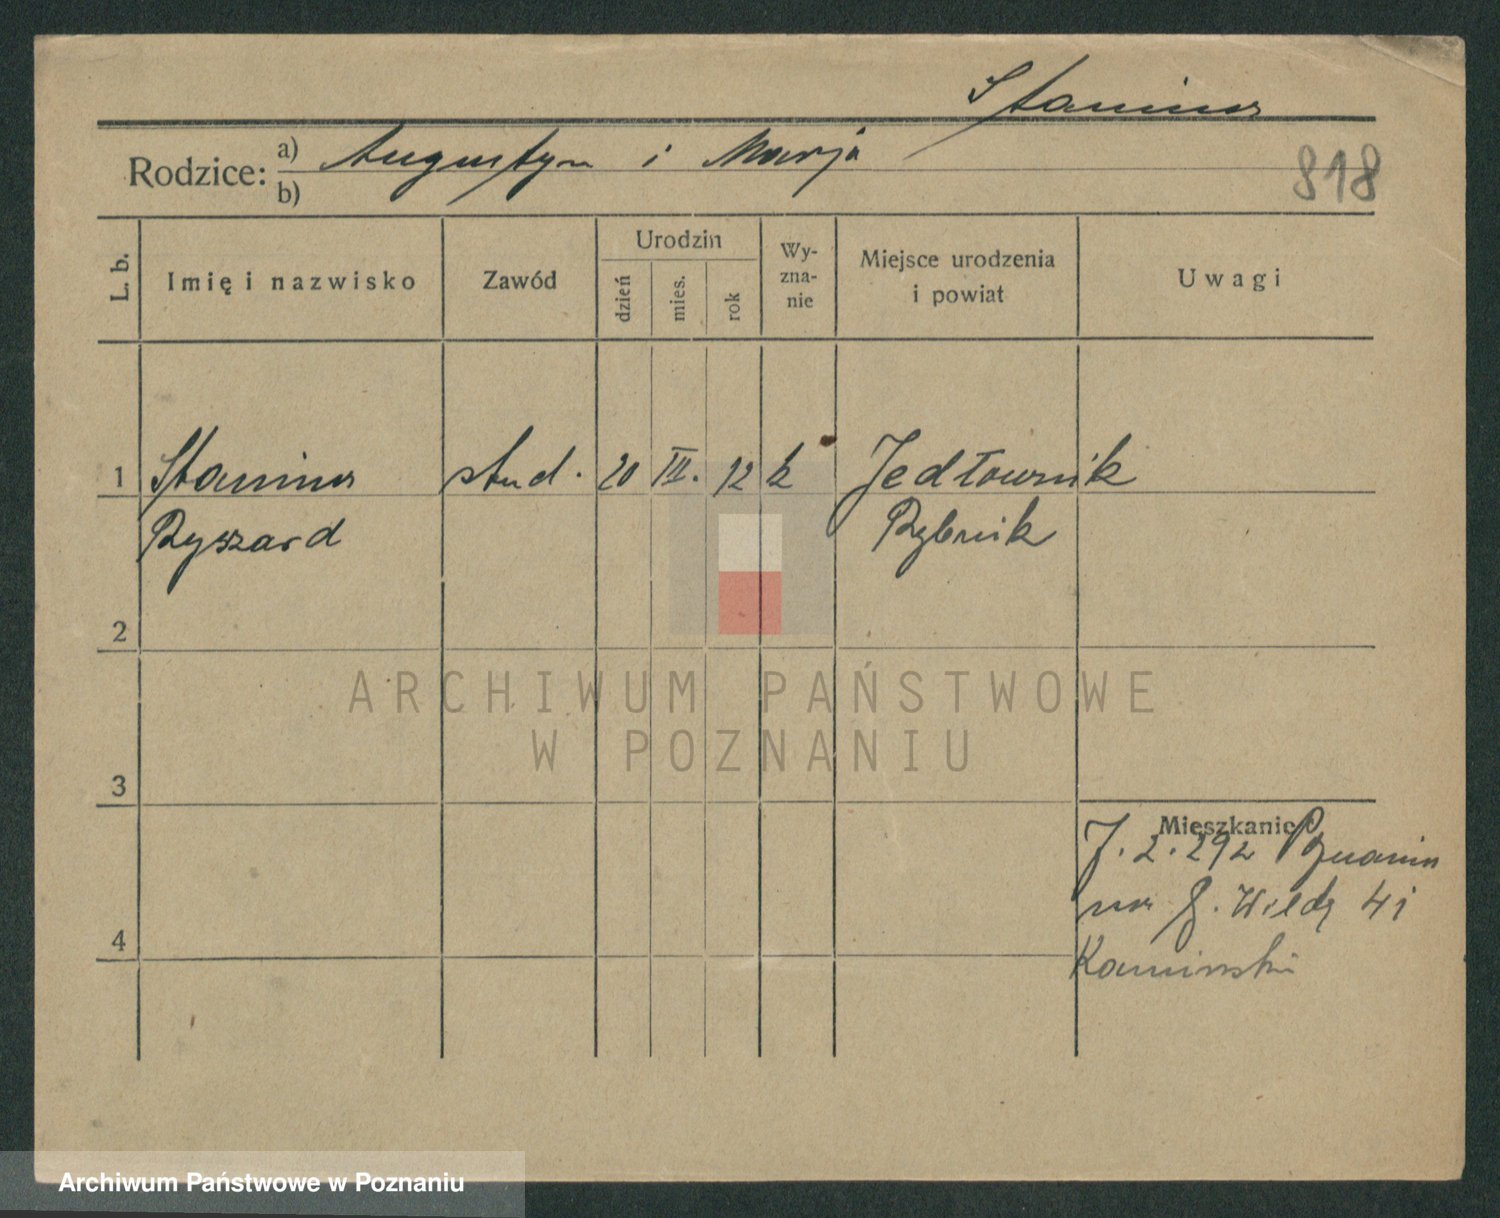 Staniura
Rodzice: a) Augustyn i Marja
b)
818
L. b.
Imię i nazwisko
Zawód
Urodzin
dzień
mies.
rok
Wy-
zna-
nie
Miejsce urodzenia
i powiat
Uwagi
1 Staniura stud. 20 III. 12 k Jedłownik
Ryszard Rybnik
2
3
4
Mieszkanie:
7.2.292 Poznania
G. Wilda 41
Kaminski
ARCHIWUM PAŃSTWOWE
W POZNANIU
Archiwum Państwowe w Poznaniu